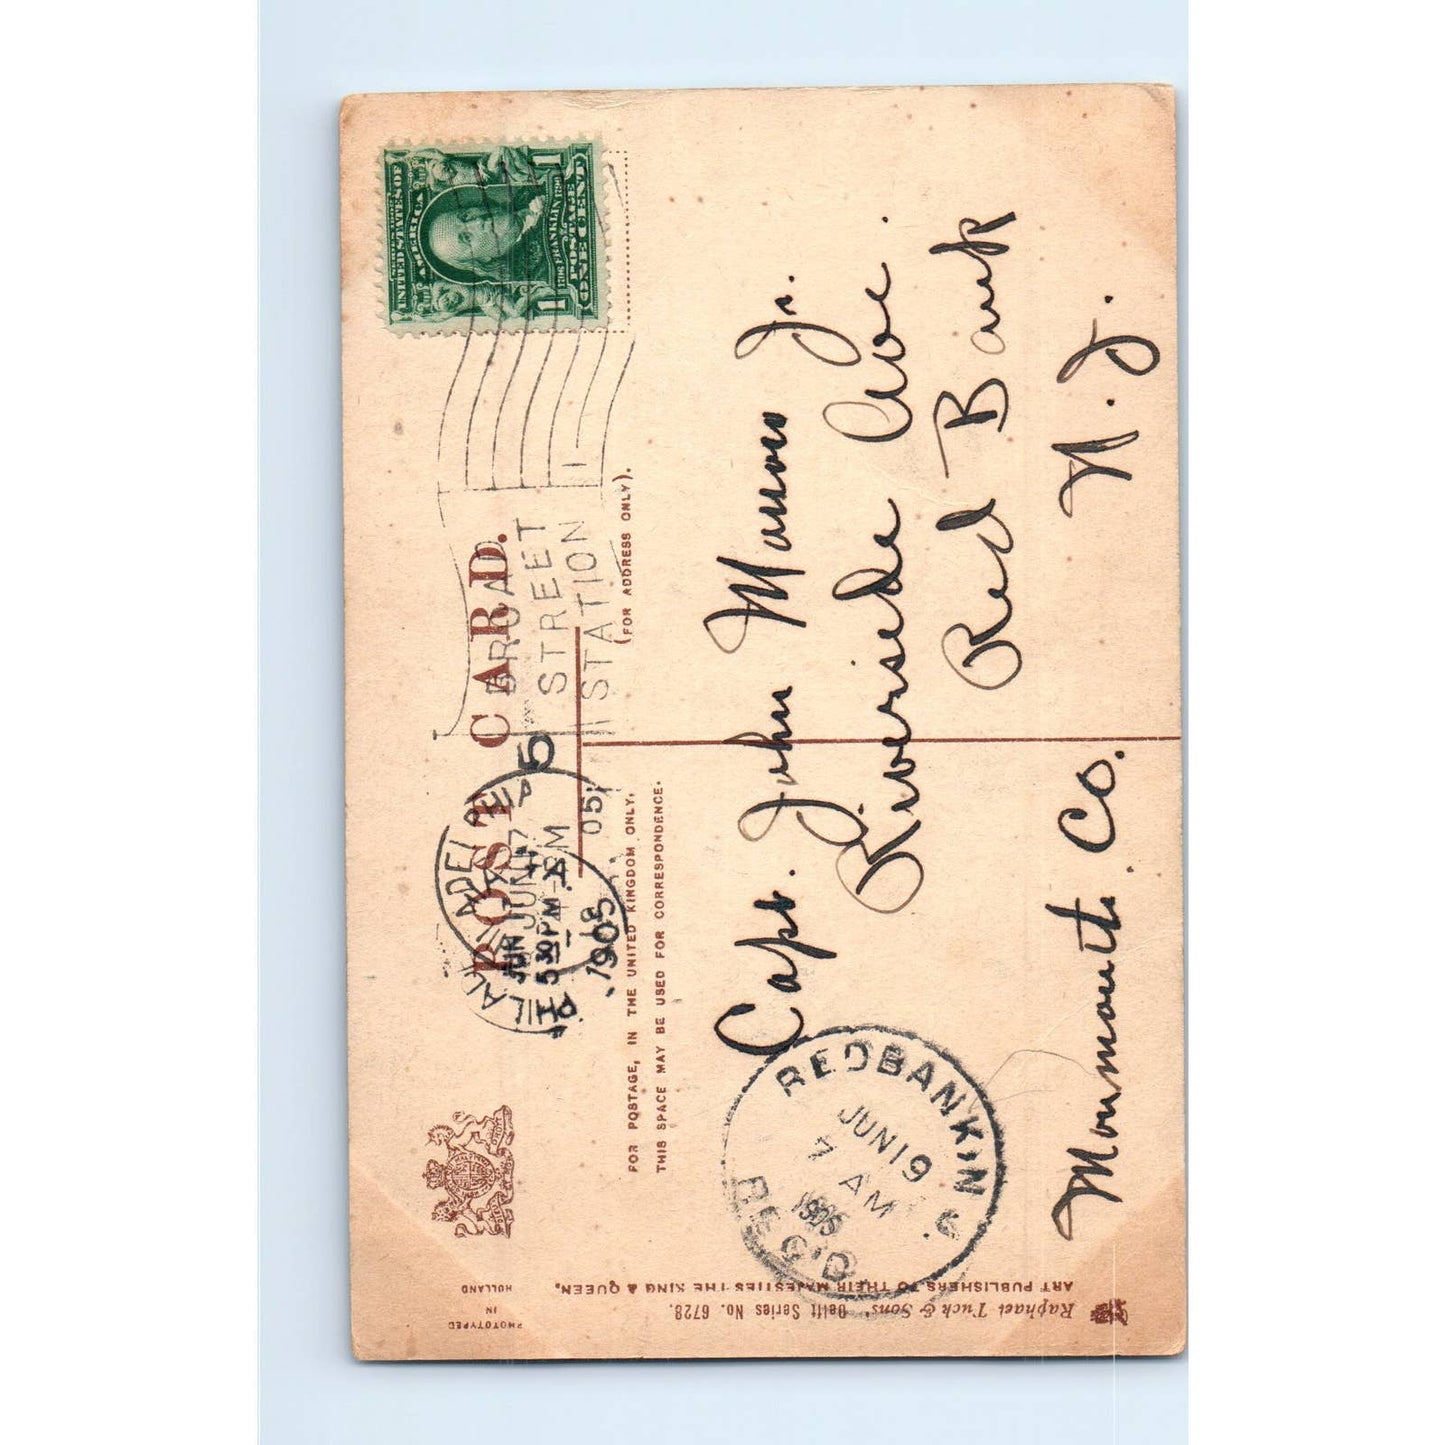 POST CARD.
FOR POSTAGE, IN THE UNITED KINGDOM ONLY,
THIS SPACE MAY BE USED FOR CORRESPONDENCE.
(FOR ADDRESS ONLY).
SERIES 1902
UNITED STATES OF
AMERICA
1706 FRANKLIN 1790
POSTAGE
1 ONE CENT 1
PHILADELPHIA
JUN 17
5 30 PM
1905
5
BROAD
STREET
STATION
1
Capt. John
Riverside Ave.
Red Bank
N. J.
Monmouth Co.
RED BANK, N
JUN 19
7 AM
1905
REC'D
PHOTOTYPED
IN
HOLLAND
Raphael Tuck & Sons' Delft Series No. 6728.
ART PUBLISHERS TO THEIR MAJESTIES THE KING & QUEEN,